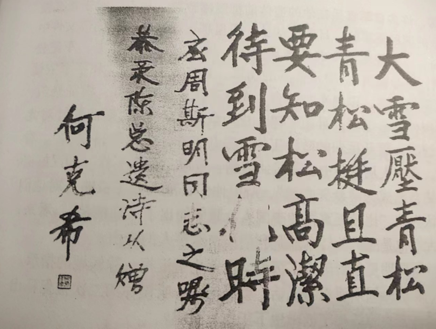 大雪壓青松
青松挺且直
要知松高潔
待到雪時
应周斯明同志之嘱
恭录陳总遺诗以赠
何克希